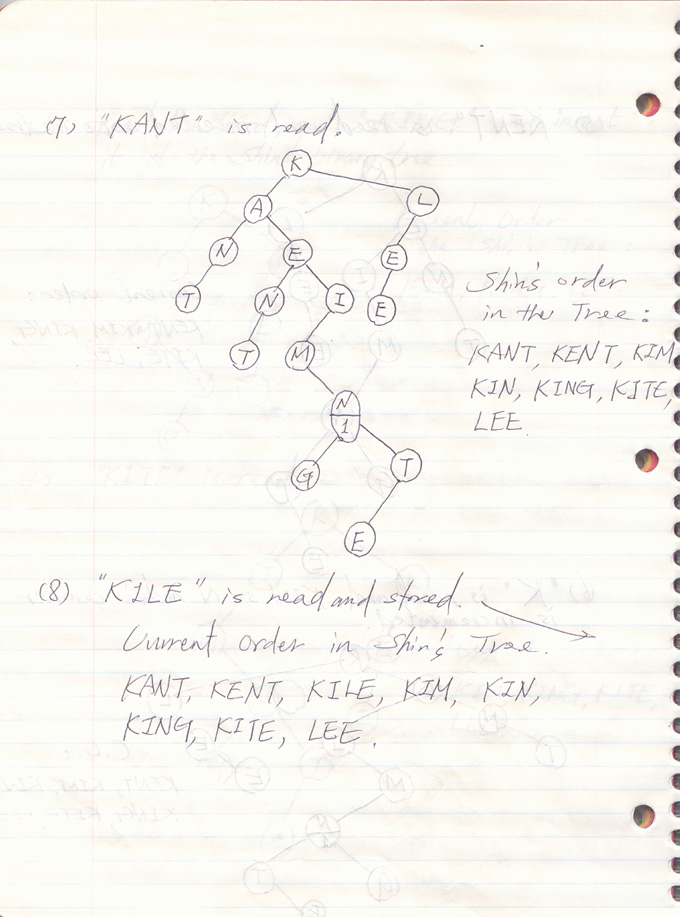 (7) "KANT" is read.
K
A
L
N
E
E
T
N
I
E
T
M
N
1
G
T
E
Shin's order
in the Tree:
KANT, KENT, KIM
KIN, KING, KITE,
LEE
(8) "KILE" is read and stored.
Current Order in Shin's Tree.
KANT, KENT, KILE, KIM, KIN,
KING, KITE, LEE.